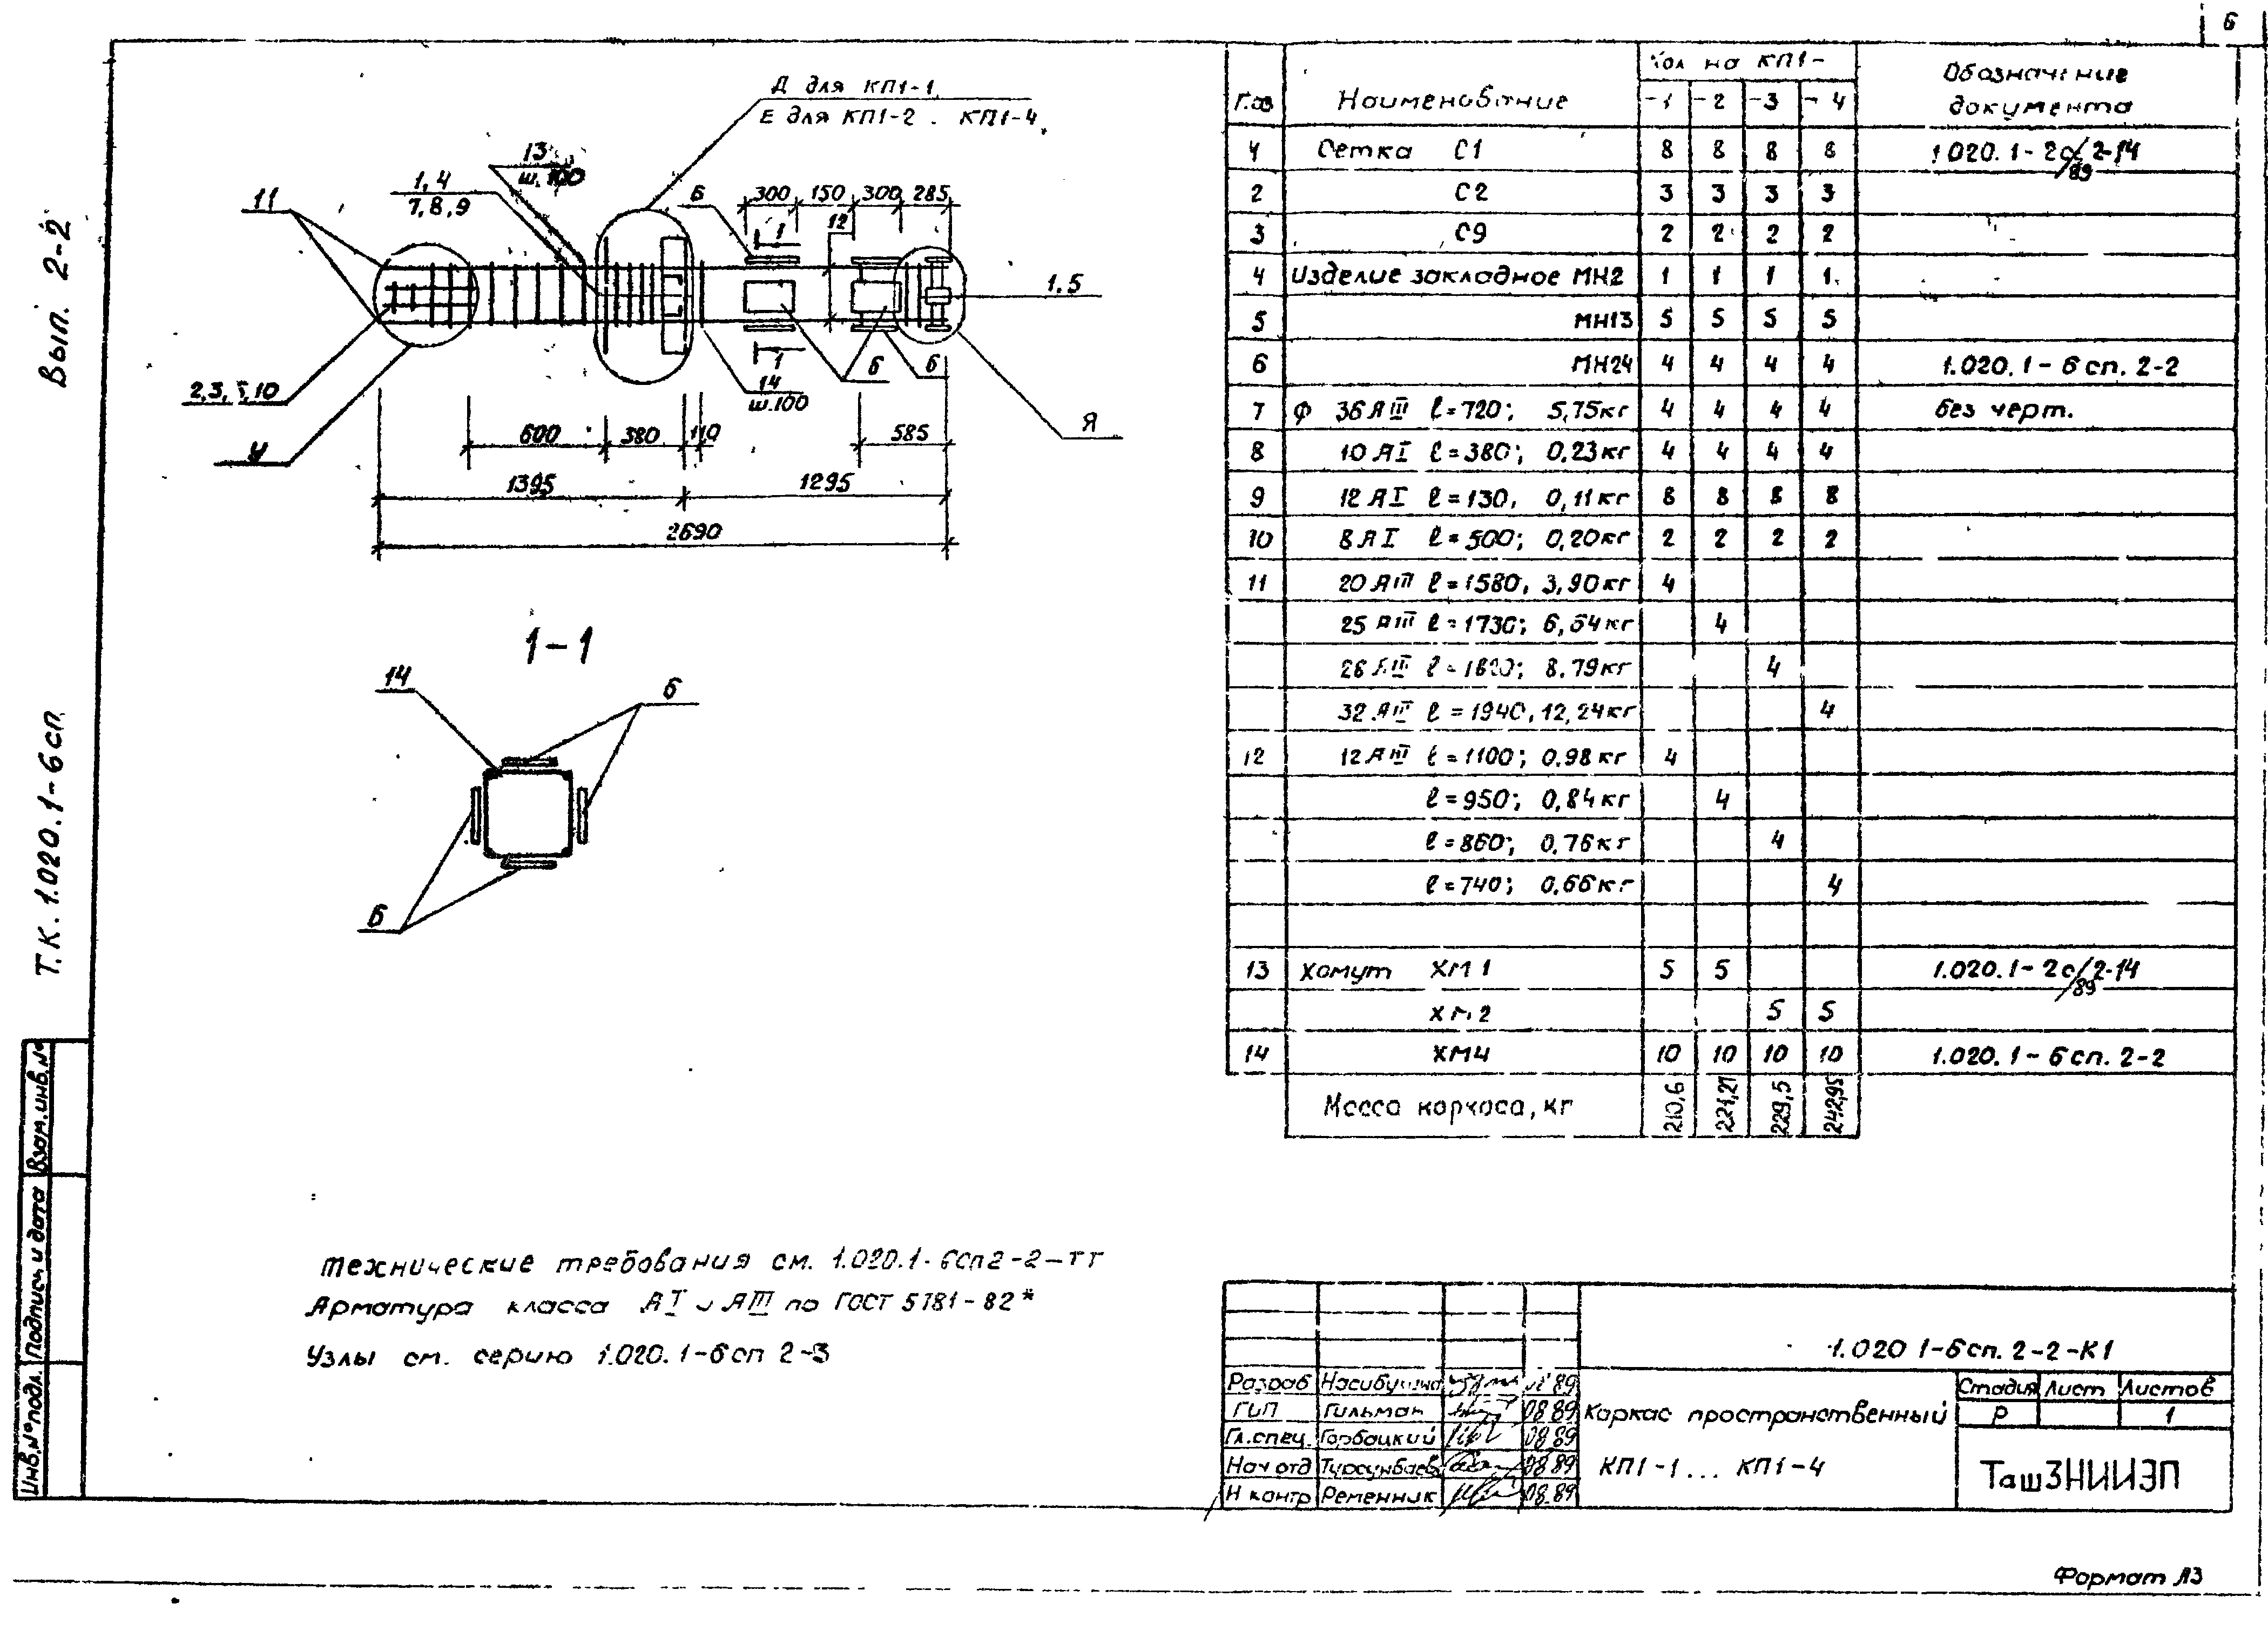 6
Вып. 2-2
Т.К. 1.020.1-6сп
Взам.инв.№
Подпись и дата
Инв.№ подл.
Д для КП1-1
Е для КП1-2 . КП1-4
13
ш.100
1,4
7,8,9
11
6
300 150 300 285
12
1
1.5
2,3, 10
У
6 6
1
14
ш.100
Я
600 380 110 585
1395 1295
2690
1-1
14
6
6
Поз Наименование Кол на КП1- Обозначение документа
-1 -2 -3 -4
Сетка С1 8 8 8 8 1.020.1-2с/2-14
/89
2 С2 3 3 3 3
3 С9 2 2 2 2
4 Изделие закладное МН2 1 1 1 1
5 МН13 5 5 5 5
6 МН24 4 4 4 4 1.020.1-6сп. 2-2
7 Ф 36 АIII ℓ=720; 5,75кг 4 4 4 4 без черт.
8 10 АI ℓ=380; 0,23кг 4 4 4 4
9 12 АI ℓ=130, 0,11кг 8 8 8 8
10 8 АI ℓ=500; 0,20кг 2 2 2 2
11 20 АIII ℓ=1580, 3,90кг 4
25 АIII ℓ=1730; 6,64кг 4
28 АIII 8.79кг 4
32 АIII ℓ=1940, 12,24кг 4
12 12 АIII ℓ=1100; 0.98кг 4
ℓ=950; 0,84кг 4
ℓ=860; 0.76кг 4
ℓ=740; 0.66кг 4
13 Хомут ХМ1 5 5 1.020.1-2с/2-14
/89
ХМ2 5 5
14 ХМ4 10 10 10 10 1.020.1-6сп. 2-2
Масса каркаса, кг 210,6 221,21 229,5 242,95
Технические требования см. 1.020.1-6сп2-2-ТТ
Арматура класса АI и АIII по ГОСТ 5781-82*
Узлы см. серию 1.020.1-6сп 2-3
1.020 1-6сп. 2-2-К1
Разраб 89
ГИП Гильман 08.89
Гл.спец. Горбацкий 08.89
Нач отд Турсунбаев 08.89
Н контр Ременник 08.89
Каркас пространственный
КП1-1... КП1-4
Стадия Лист Листов
Р 1
ТашЗНИИЭП
Формат А3